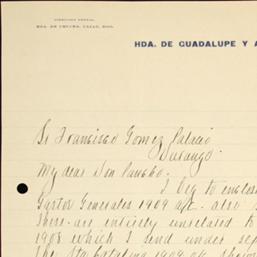 DIRECCION POSTAL
HDA. DE GUADALUPE Y A
Sr Francisco Gomez Palacio
Durango.
My dear Don Pancho.
I beg to enclose
Gastos Generales 1909 a/c. also
these are entirely unrelated to
1908 which I send under sep
The Sta Catalina 1909 a/c